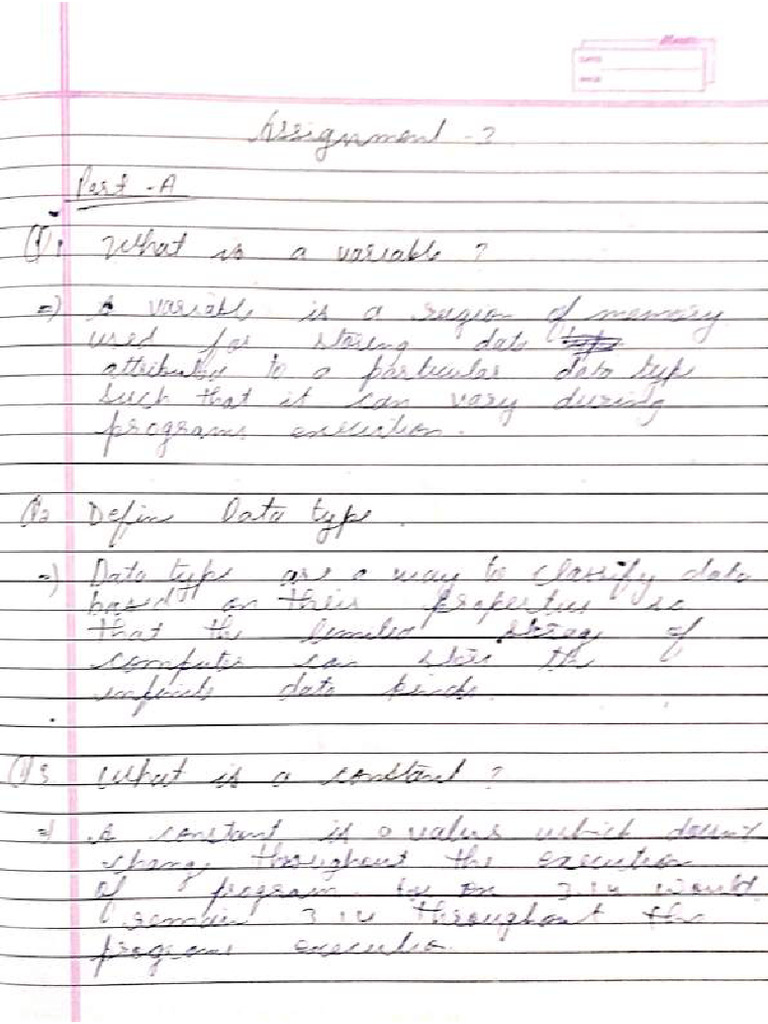 Assignment - 3
Part - A
Q1 What is a variable ?
=) A variable is a region of memory
used for storing data
attribute to a particular data type
such that it can vary during
programs execution.
Q2 Define Data type.
=) Data type are a way to classify data
based on their properties so
that the limited of
computer can store the
infinite data kinds.
Q3 What is a constant ?
=) A constant is a value which doesn't
change throughout the execution
of program. 3.14 would
remain 3.14 throughout the
programs execution.